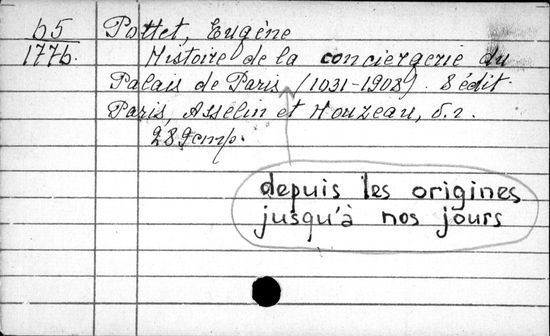 b5 Pottet, Eugène
1776. Histoire de la conciergerie du
Palais de Paris (1031-1908). 8 édit.
Paris, Asselin et Houzeau, б.г.
289 стр.
depuis les origines
jusqu'à nos jours